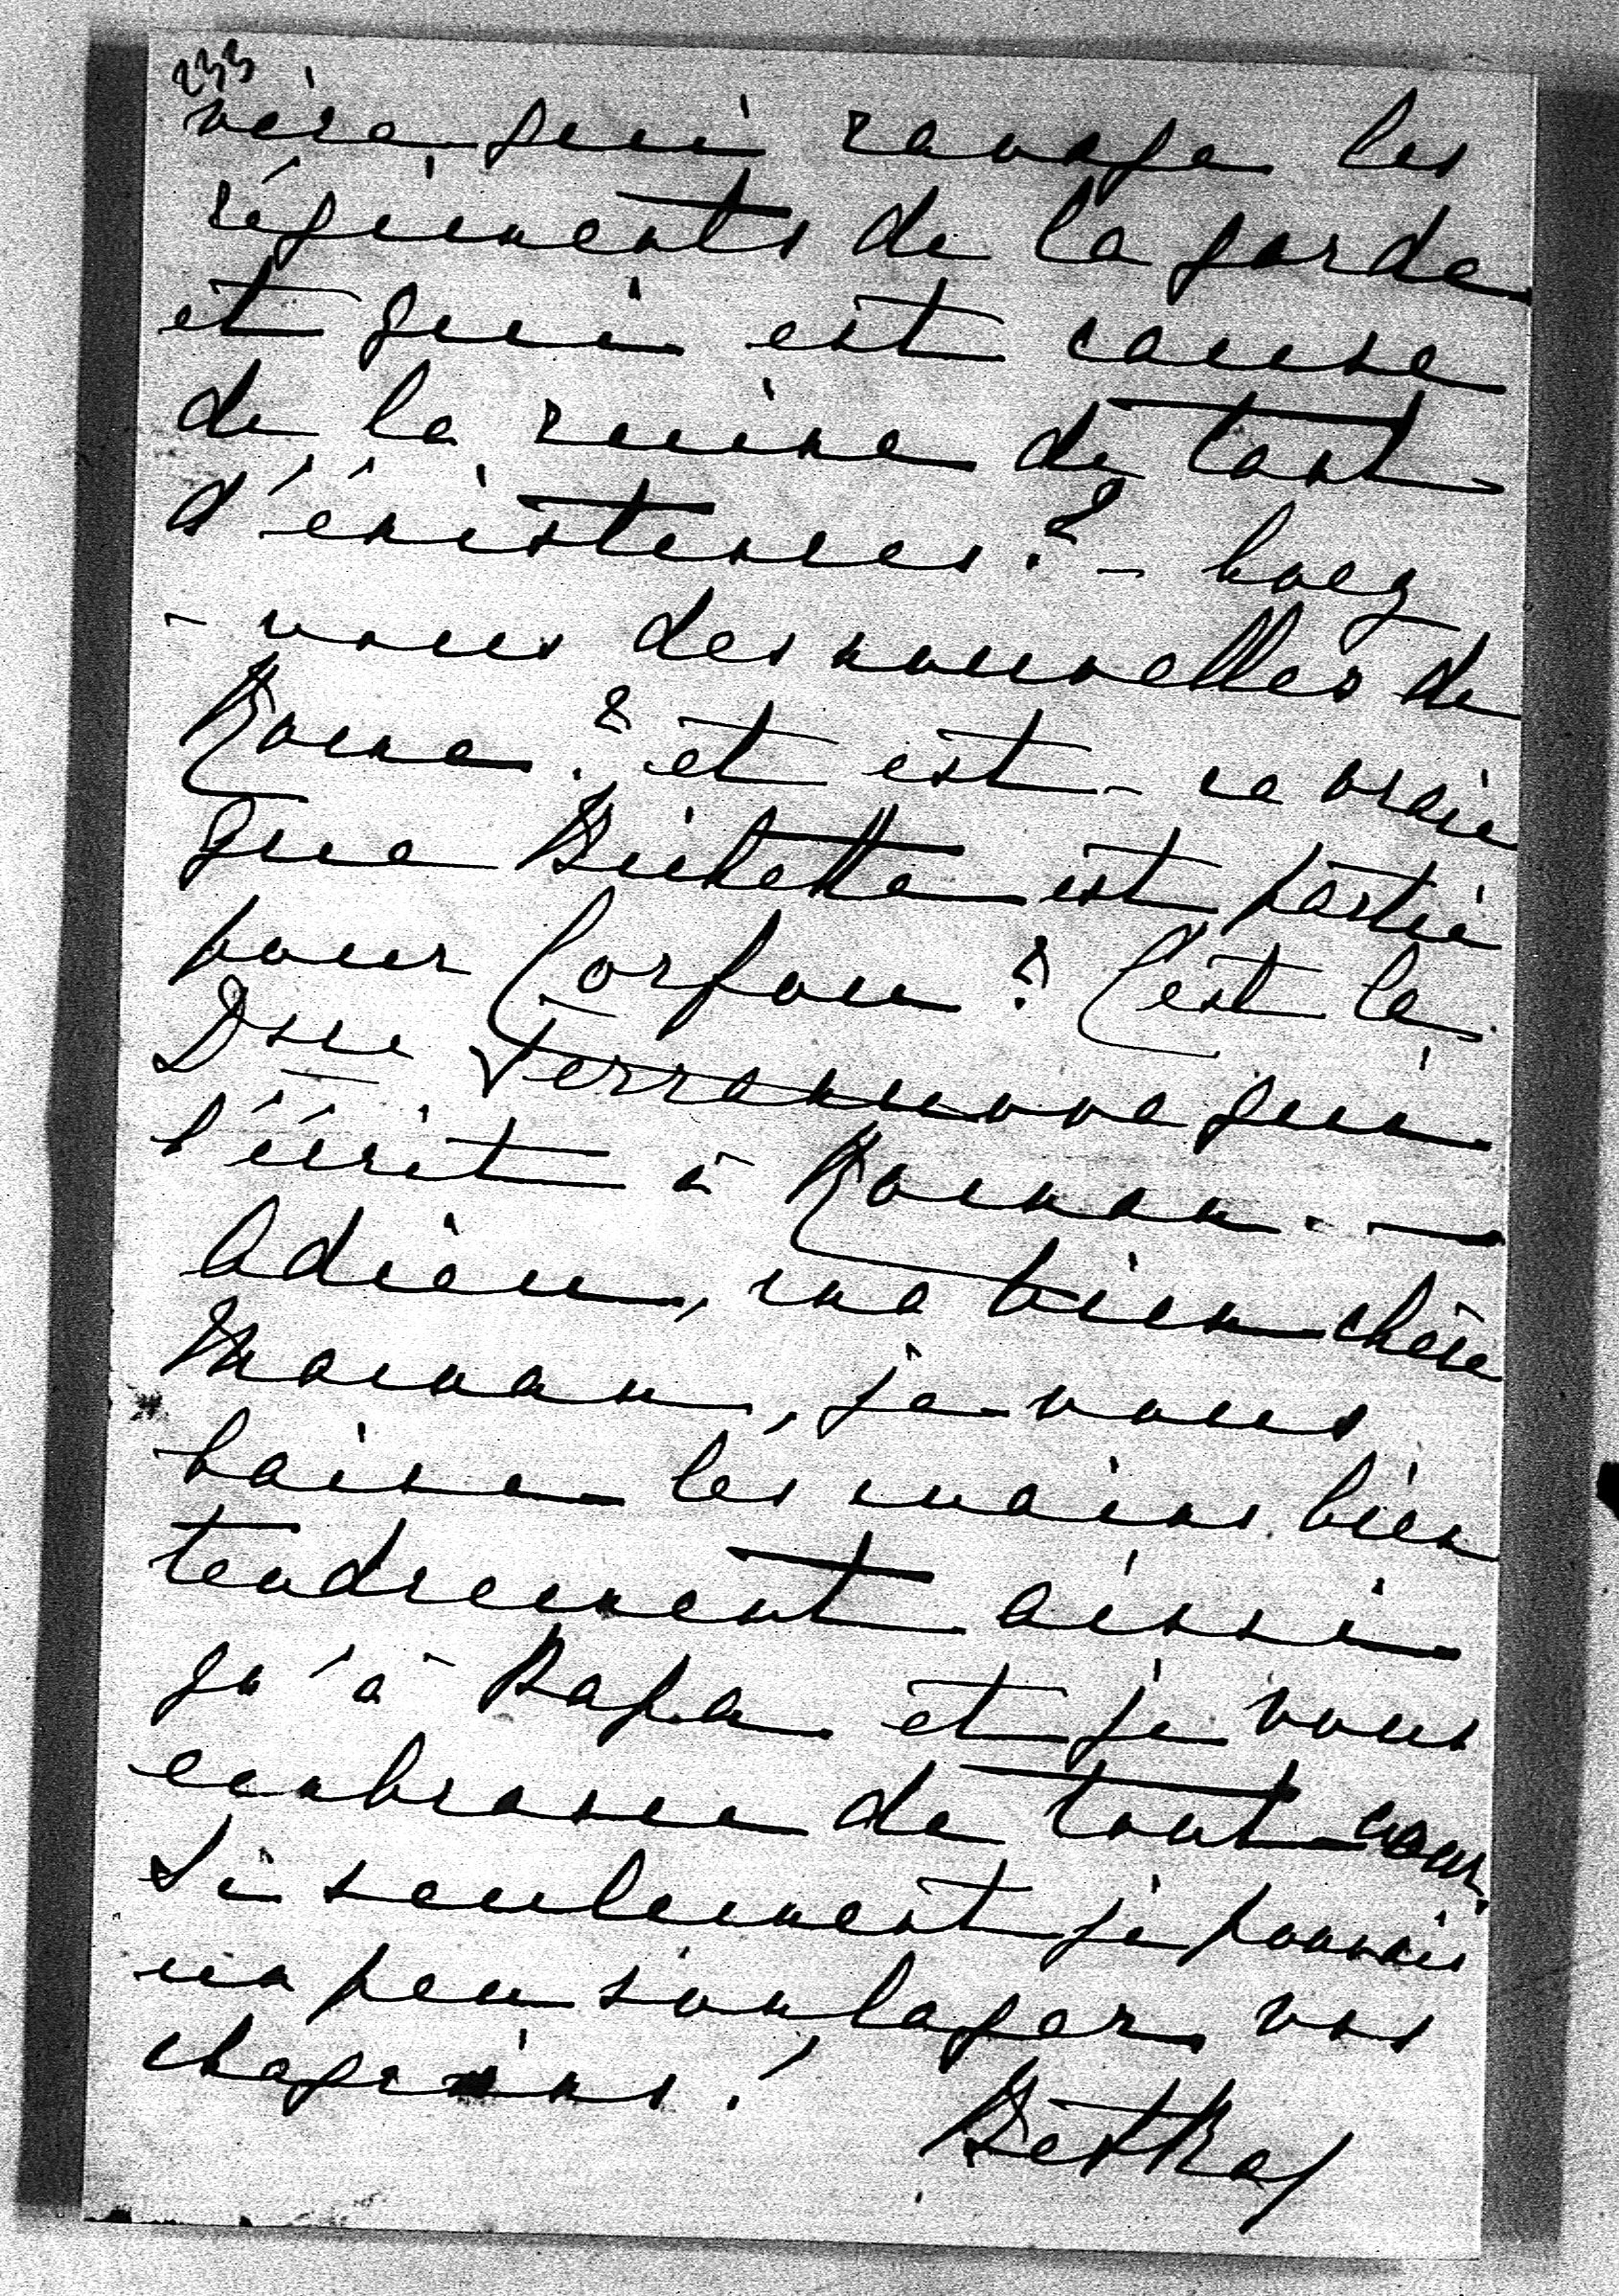 233
vère qui ravage les
régiments de la garde
et qui est cause
de la ruine de tant
d'éxistences? - Avez
- vous des nouvelles de
Rome? et est-ce vrai
que Bichette est partie
pour Corfou? C'est la
Dsse Terranuova qui
l'écrit à Roman. —
Adieu, ma bien chère
Maman, je vous
baise les mains bien
tendrement ainsi
qu'à Papa et je vous
embrasse de tout cœur.
Si seulement je pouvais
un peu soulager vos
chagrins!